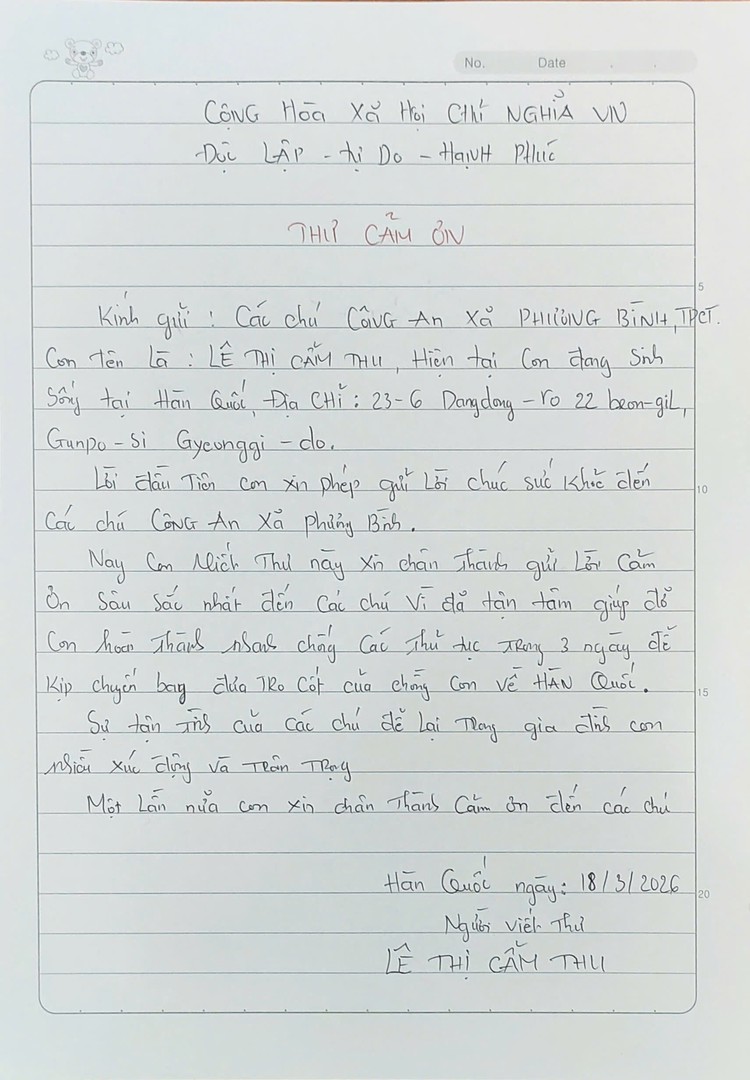 No. Date . .
CỘNG HÒA XÃ HỘI CHỦ NGHĨA VN
ĐỘC LẬP - Tự Do - HẠNH PHÚC
THƯ CẢM ƠN
5
Kính gửi : Các chú CÔNG An Xã PHƯƠNG BÌNH, TPCT.
Con tên Là : LÊ THỊ CẨM THU, Hiện tại Con đang Sinh
Sống tại Hàn Quốc, Địa CHỈ : 23-6 Dangdong-ro 22 beon-gil,
Gunpo-si Gyeonggi-do.
Lời đầu Tiên con xin phép gửi Lời chúc sức khỏe đến
10
Các chú CÔNG An Xã Phương Bình.
Nay Con Viết Thư này xin chân Thành gửi Lời Cảm
Ơn Sâu Sắc nhất đến Các chú Vì đã tận tâm giúp đỡ
Con hoàn Thành nhanh chống Các Thử tục Trong 3 ngày để
Kịp chuyến bay đưa TRO Cốt của chồng Con về HÀN Quốc.
15
Sự tận Tình của các chú để Lại Trong gia đình con
nhiều xúc động và Trân Trọng
Một Lần nữa con xin chân Thành Cảm ơn đến các chú
Hàn Quốc ngày: 18/3/2026
20
Người viết Thư
LÊ THỊ CẨM THU